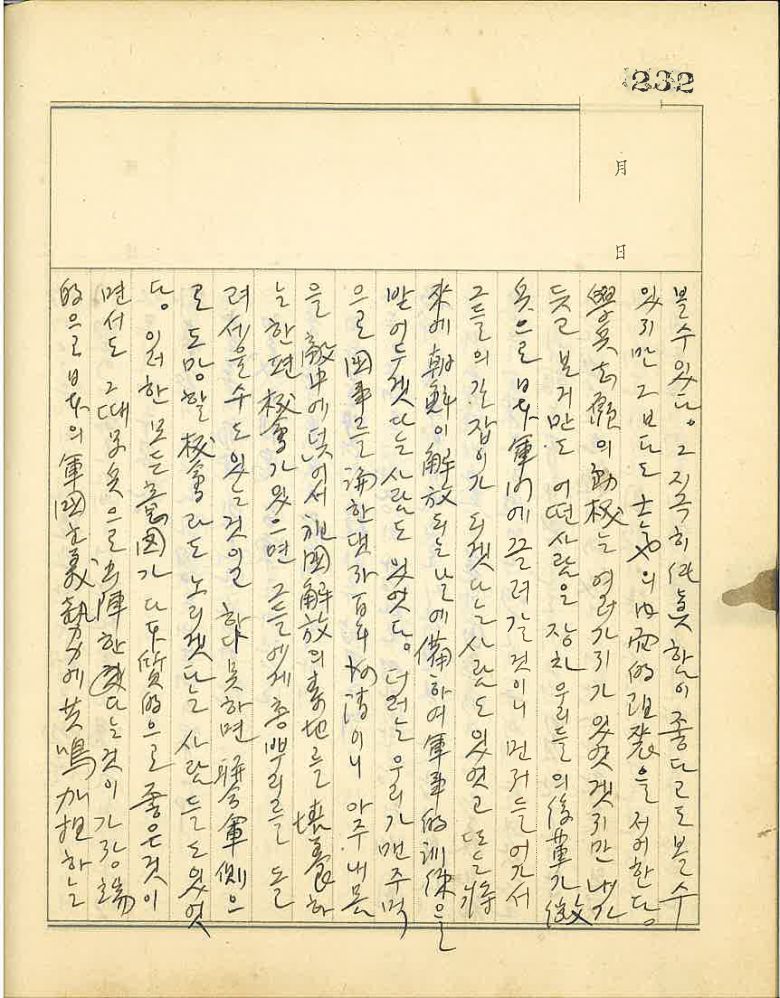 232
月
日
볼 수 있다. 그 지극히 純眞함이 좋다고도 볼 수
있지만 그보다도 意識의 內面的 埋裝을 저어한다.
學兵志願의 動機는 여러가지가 있었겠지만 내가
듣고 보거만도 어떤 사람은 장차 우리들의 後輩가 徵
兵으로 日本軍內에 끌려 갈 것이니 먼저 들어가서
그들의 길잡이가 되겠다는 사람도 있었고 또는 將
來에 朝鮮이 解放되는 날에 備하여 軍事的 訓練을
받어두겠다는 사람도 있었다. 더러는 우리가 맨주먹
으로 國事를 論한댔자 百年河淸이니 아주 내 몸
을 敵中에 던어서 祖國解放의 素地를 培養하
는 한편 機會가 있으면 그들에게 총뿌리를 돌
려 세울 수도 있는 것이고 하다 못하면 聯合軍側으
로 도망할 機會라도 노리겠다는 사람들도 있었
다. 이러한 모든 意圖가 다 本質的으로 좋은 것이
면서도 그때 學兵으로 出陣한 다는 것이 가장
的으로 日本의 軍國主義 勢力에 共鳴 加担하는